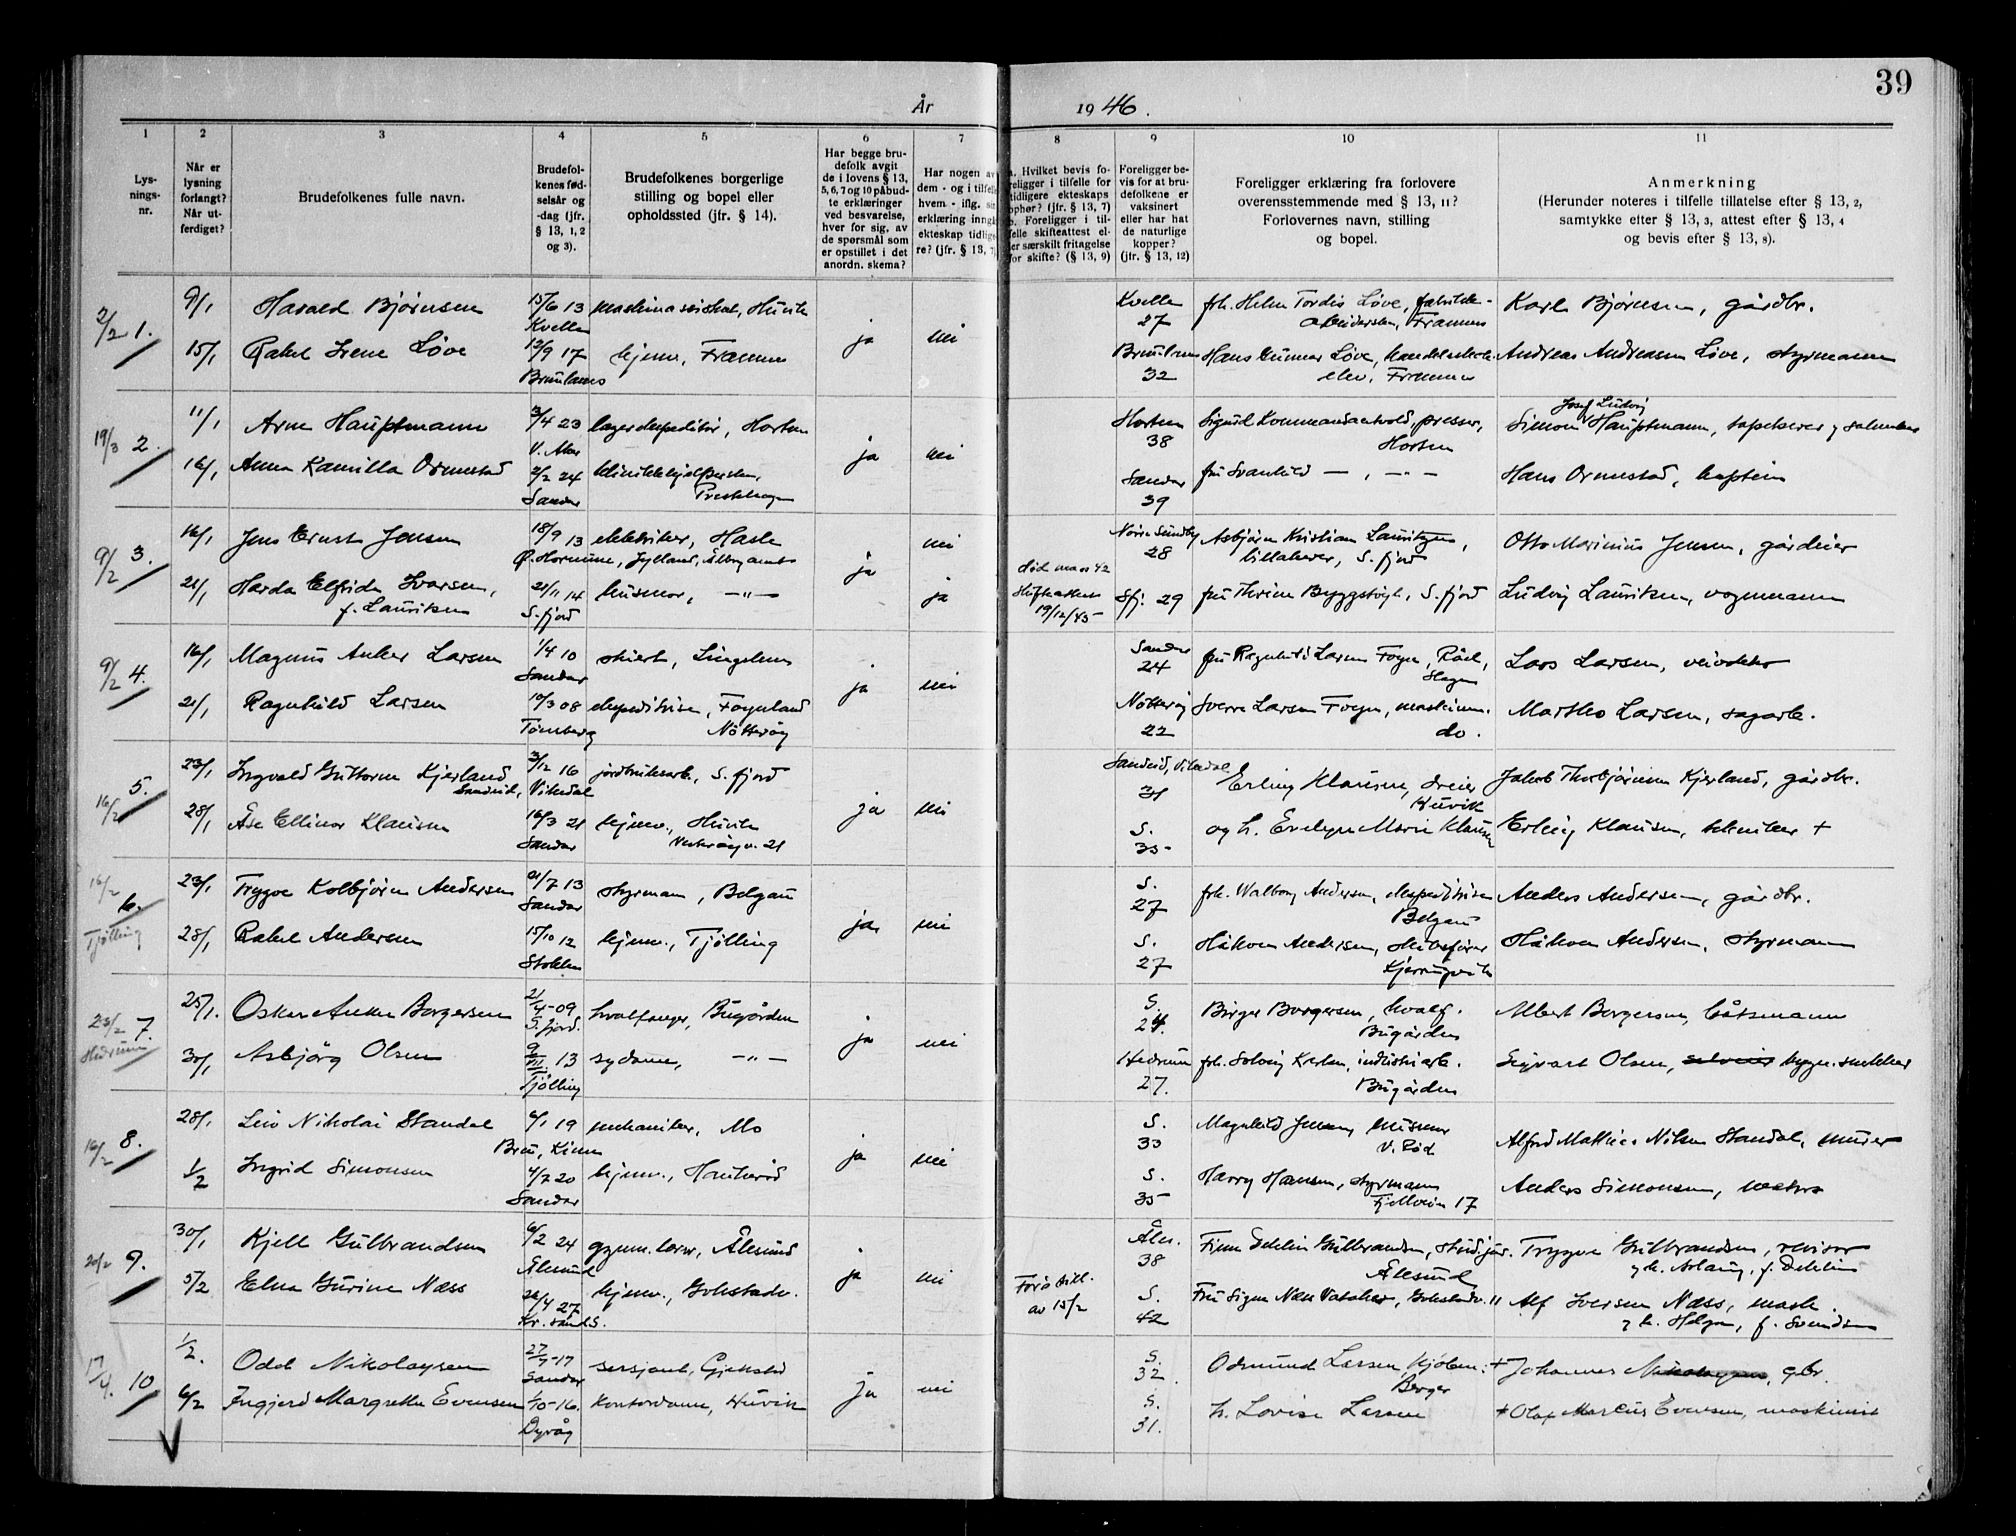 39
År 1946.
1 2 3 4 5 6 7 8 9 10 11
Lys-
nings-
nr.
Når er
lysning
forlangt?
Når ut-
ferdiget?
Brudefolkenes fulle navn.
Brudefol-
kenes fød-
selsår og
-dag (jfr.
§ 13, 1, 2
og 3).
Brudefolkenes borgerlige
stilling og bopel eller
opholdssted (jfr. § 14).
Har begge bru-
defolk avgit
de i lovens § 13,
5, 6, 7 og 10 påbud-
te erklæringer
ved besvarelse,
hver for sig, av
de spørsmål som
er opstillet i det
anordn. skema?
Har nogen av
dem - og i tilfelle
hvem - iflg. sin
erklæring inngå
ekteskap tidlige
re? (jfr. § 13, 7)
a. Hvilket bevis fo-
religger i tilfelle for
tidligere ekteskaps
ophør? (jfr. § 13, 7)
b. Foreligger i til-
felle skifteattest el-
ler særskilt fritagelse
for skifte? (§ 13, 9)
Foreligger be-
vis for at bru-
defolkene er
vaksinert
eller har hat
de naturlige
kopper?
(jfr. § 13, 12)
Foreligger erklæring fra forlovere
overensstemmende med § 13, 11?
Forlovernes navn, stilling
og bopel.
Anmerkning
(Herunder noteres i tilfelle tillatelse efter § 13, 2,
samtykke efter § 13, 3, attest efter § 13, 4
og bevis efter § 13, 8).
2/2 1. 9/1 Harald Bjørnsen 15/6 13 Kvelle ja nei Kvelle 27 frk. Helen Tordis Løve, fabrikk-
arbeiderske, Framnes Karl Bjørnsen, gårdbr.
15/1 Rakel Irene Løve 12/9 17 Brunlanes hjemv., Framnes Brunlanes 32 Hans Gunnar Løve, handelsskole-
elev, Framnes Andreas Andreasen Løve, styrmann
19/3 2. 11/1 Arne Hauptmann 3/4 23 V. Aker lagerekspeditør, Horten ja nei Horten 38 Sigurd Kommandantvold, presser,
Horten Simon Josef Ludvig Hauptmann, tapetserer
16/1 Anna Kamilla Ormestad 2/2 24 Sandar Sandar 39 fru Svanhild — , — " — Hans Ormestad, kaptein
9/2 3. 16/1 Jens Ernst Jensen 18/9 13 elektriker, Hasle nei Nørre Sundby 28 Asbjørn Kristian Lauritzen,
S. fjord Otto Marinius Jensen, gårdeier
21/1 Harda Elfrida Ivarsen,
f. Lauritsen 21/11 14 S. fjord husmor, —"— ja ja død mars 42
19/12/45 Sfj. 29 S. fjord Ludvig Lauritsen, vognmann
9/2 4. 16/1 Magnus Anker Larsen 1/4 10 Sandar ja nei Sandar 24 Lars Larsen
21/1 Ragnhild Larsen 10/3 08 Tønsberg ekspeditrise,Føynland
Nøtterøy Nøtterøy 22 Sverre Larsen Føyn, maskinm.
do. Marthus Larsen, sagarb.
16/2 5. 23/1 Ingvald Guttorm Kjerland
3/12 16 Vikedal jordbruksarb., S. fjord ja nei Sandeid, Vikedal 31 Erling Klausen, dreier
Huvik Jakob Thorbjørnsen Kjerland, gårdbr.
28/1 Åse Ellinor Klausen 16/3 21 Sandar hjemv., Huvik
Vesterøyv. 21 S. 35 og h. Evelyn Marie Klausen Erling Klausen, tekniker +
16/2 6. Tjølling 23/1 Trygve Kolbjørn Andersen 21/7 13 Sandar styrmann, Belgau ja nei S. 27 frk. Walborg Andersen, ekspeditrise
Belgau Anders Andersen, gårdbr.
28/1 Rakel Andersen 15/10 12 Stokken hjemv., Tjølling S. 27 Håkon Andersen, skibsfører
Kjerringvik Håkon Andersen, styrmann
23/2 7. Hedrum 25/1. Oskar Anker Borgersen 21/4-09 S. fjord. hvalfanger, Bugården ja nei S. 24. Birger Borgersen, hvalf.
Bugården Albert Borgersen, båtsmann
30/1 Asbjørg Olsen 9/VII 13 Tjølling sydame, —"— Hedrum 27. frk. Solveig Karlsen, industriarb.
Bugården Sigvart Olsen, bygn.snekker
16/2 8. 28/1 Leiv Nikolai Standal 6/1 19 Bru, Kinn mekaniker, Mo ja nei S. 33 Magnhild Jensen, husmor
V. Rød Alfred Mathias Nilsen Standal, murer
1/2 Ingrid Simonsen 4/2 20 Sandar hjemv., Haukerød S. 35 Harry Hansen, styrmann
Fjellveien 17 Anders Simonsen
20/2 9. 30/1 Kjell Gulbrandsen 6/2 24 Ålesund gymn.lærer, Ålesund ja nei Åles. 38 Finn Dehlin Gulbrandsen, stud.jur.
Ålesund Trygve Gulbrandsen, revisor
og h. Aslaug, f. Dehlin
5/2 Elna Gurine Næss 26/4 27 Kr. sand S. hjemv., Gokstadv. av 15/2 S. 42 Fru Signe Næss Gokstadv. 11 Alf Iversen Næss, mask.
og h. Helga, f. Svendsen
17/4. 10 1/2. Odd Nikolaysen 27/7-17 Sandar sersjant, Gjekstad ja nei S. 32 Odmund Larsen
Berger + Johannes Nikolaysen, gbr.
6/2 Ingjerd Margrethe Evensen 1/10-16. Dyvåg Kontordame, Huvik S. 31. h. Lovise Larsen + Olaf Marcus Evensen, maskinist